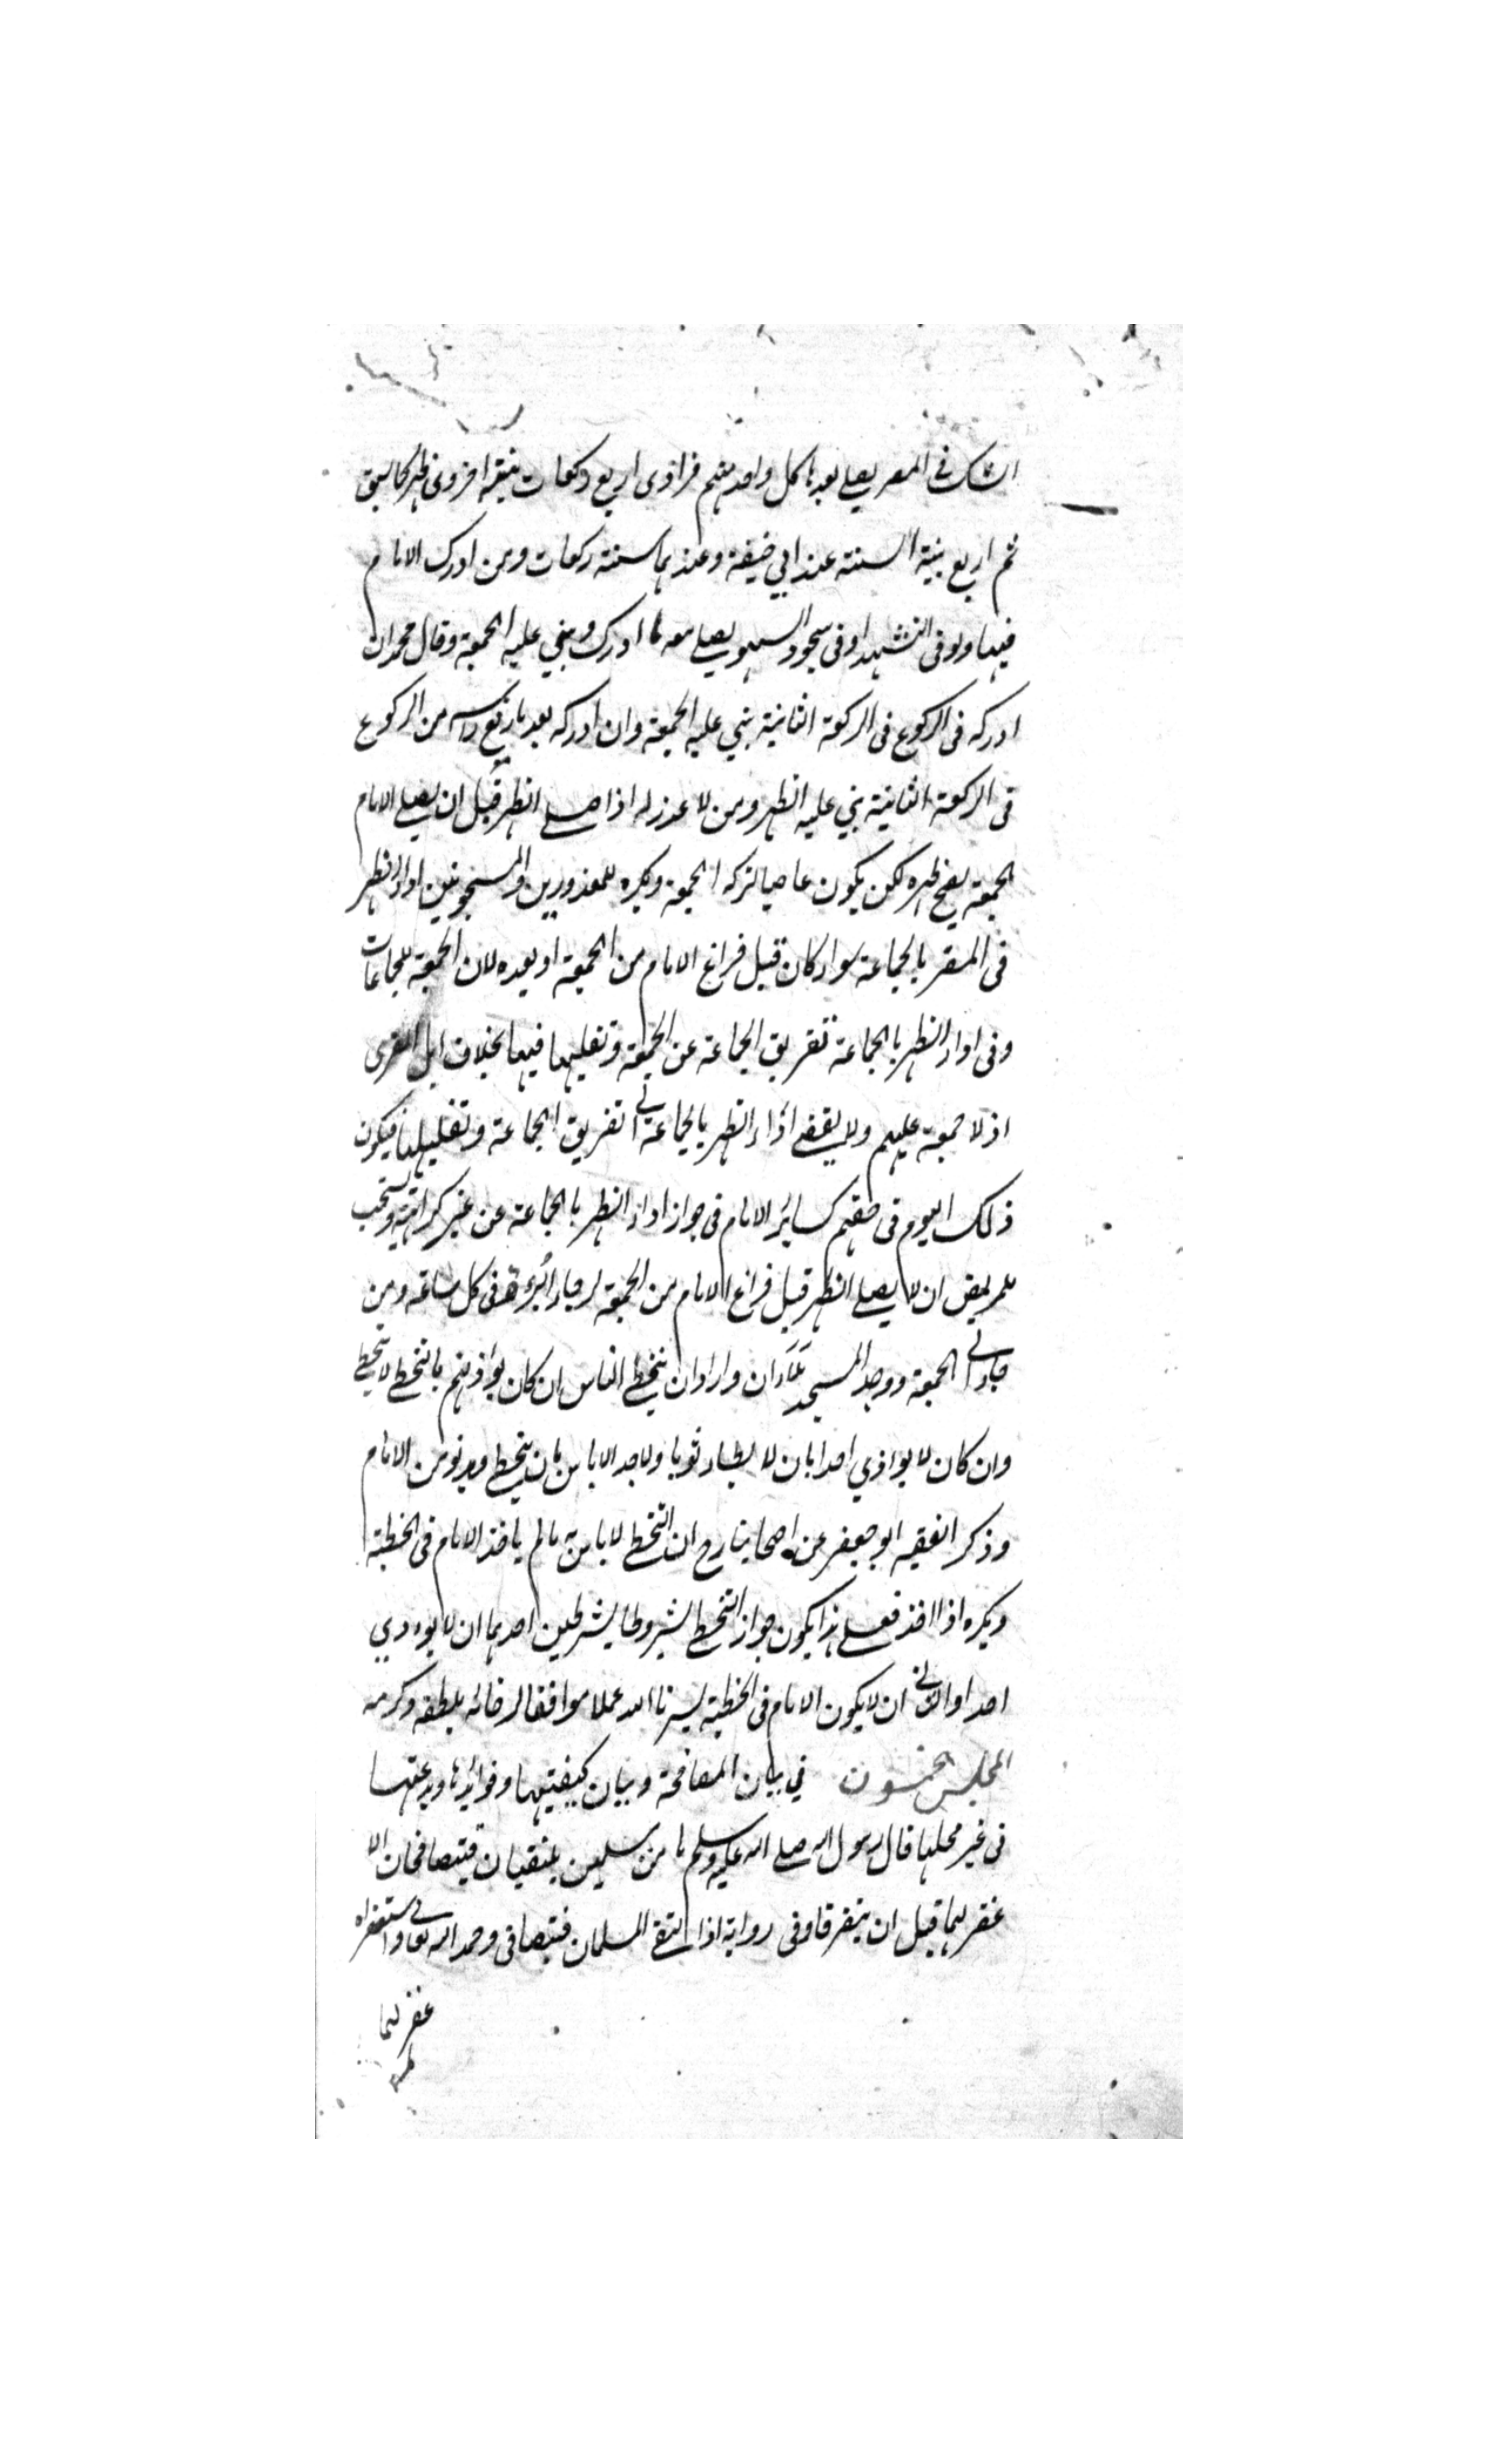 الشك في المصر يصلي بعدها كل واحد منهم فرادى اربع ركعات بنية اخر وفي ظهر كما سبق
ثم اربع بنية السنة عند ابي حنيفة وعندهما ستة ركعات ومن ادرك الامام
فيها ولو في التشهد او في سجود السهو يصلي معه ما ادرك ويبني عليه الجمعة وقال محمد ان
ادركه في الركوع في الركعة الثانية يبني عليه الجمعة وان ادركه بعد ما رفع رأسه من الركوع
في الركعة الثانية يبني عليه الظهر ومن لا عذر له اذا صلى الظهر قبل ان يصلي الامام
الجمعة يصح ظهره لكن يكون عاصيا لتركه الجمعة ويكره للمعذورين والمسجونين اداء الظهر
في المصر بالجماعة سواء كان قبل فراغ الامام من الجمعة او بعده لان الجمعة للجماعات
وفي اداء الظهر بالجماعة تفريق الجماعة عن الجمعة وتقليلها فيها بخلاف اهل القرى
اذ لا جمعة عليهم ولا يفضي اداء الظهر بالجماعة الى تفريق الجماعة وتقليلها فيكون
ذلك اليوم في حقهم كسائر الايام في جواز اداء الظهر بالجماعة عن غير كراهة ويستحب
للمريض ان لا يصلي الظهر قبل فراغ الامام من الجمعة لرجاء البرء في كل ساعة ومن
جاء الى الجمعة ووجد المسجد ملآن واراد ان يتخطى الناس ان كان يؤاذيهم بالتخطي لا يتخطى
وان كان لا يواذي احدا بان لا يطأ ثوبا ولا جسدا لا بأس بان يتخطى ويدنو من الامام
وذكر الفقيه ابو جعفر عن اصحابنا رح ان التخطي لا باس به ما لم ياخذ الامام في الخطبة
ويكره اذا اخذ فعلى هذا يكون جواز التخطي مشروطا بشرطين احدهما ان لا يوءدي
احدا والثاني ان لا يكون الامام في الخطبة يسرنا الله عملا موافقا لرضائه بلطفه وكرمه
المجلس الخمسون في بيان المصافحة وبيان كيفيتها وفوائدها وبدعتها
في غير محلها قال رسول الله صلى الله عليه وسلم ما من مسلمين يلتقيان فيتصافحان الا
غفر لهما قبل ان يتفرقا وفي رواية اذا التقى المسلمان فتصافحا وحمدا الله تعالى واستغفراه
غفر لهما